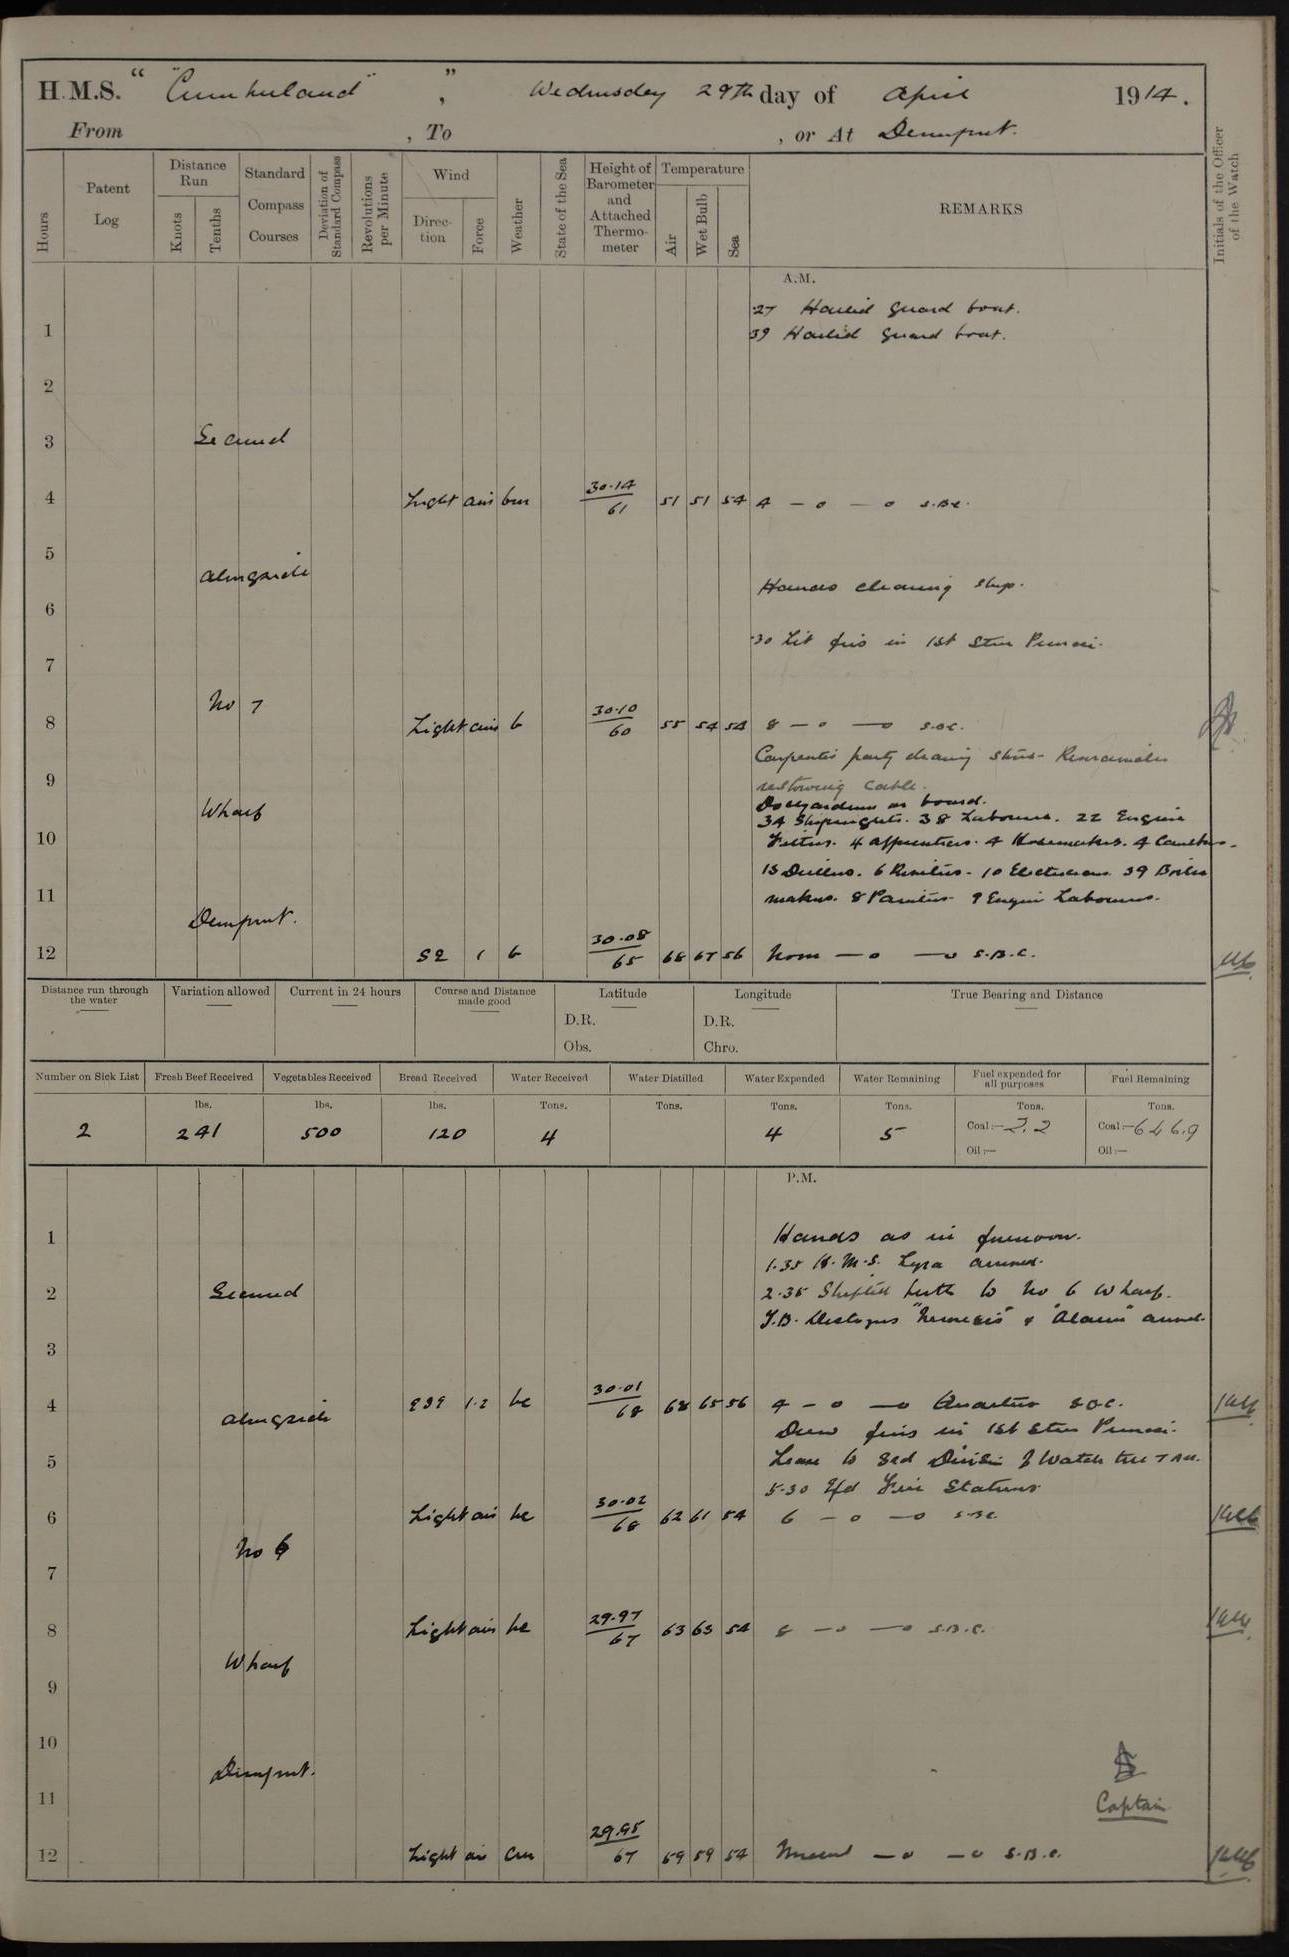 H.M.S. " "Cumberland" " , Wednesday 29th day of April 1914.
From , To , or At Devonport.
Hours
Patent Log
Distance Run
Knots
Tenths
Standard Compass Courses
Deviation of Standard Compass
Revolutions per Minute
Wind
Direction
Force
Weather
State of the Sea
Height of Barometer and Attached Thermometer
Temperature
Air
Wet Bulb
Sea
REMARKS
Initials of the Officer of the Watch
A.M.
·27 Hailed Guard boat.
1 39 Hailed Guard boat.
2
3 Secured
4 Light airs bm 30·14 61 51 51 54 4 — o — o S.B.C.
5
Alongside
Hands cleaning ship.
6
·30 Lit fires in 1st Stm Pinnace.
7
No 7
8 Light airs b 30·10 60 55 54 54 8 — o — o S.B.C.
Carpenters party cleaning Remainder
9 restowing cable.
Wharf Dockyardmen on board.
34 Shipwrights. 38 Labourers. 22 Engine
10 Fitters. 4 Apprentices. 4 Hosemakers. 4 Caulkers.
15 Drillers. 6 Riveters. 10 Electricians 39 Boiler
11 makers. 8 Painters 9 Engine Labourers.
Devonport.
12 SE 1 b 30·08 65 68 67 56 Noon — o — o S.B.C.
Distance run through the water
Variation allowed
Current in 24 hours
Course and Distance made good
Latitude
D.R.
Obs.
Longitude
D.R.
Chro.
True Bearing and Distance
Number on Sick List
Fresh Beef Received
Vegetables Received
Bread Received
Water Received
Water Distilled
Water Expended
Water Remaining
Fuel expended for all purposes
Fuel Remaining
lbs. lbs. lbs. Tons. Tons. Tons. Tons. Tons. Tons.
2 241 500 120 4 4 5 Coal:— 22 Coal:— 646.9
Oil:— Oil:—
P.M.
1 Hands as in forenoon.
1·35 H.M.S. Lyra arrived.
2 Secured 2·35 Shifted berth to No 6 Wharf.
T.B. Destroyers "Nemesis" & "Alarm" arrived.
3
4 ESE 1·2 bc 30·01 68 68 65 56 4 — o — o Quarters S.B.C.
Alongside Drew fires in 1st Stm Pinnace.
5 Leave to 3rd Division of Watch till 7 AM.
5·30 Exd Fire Stations
6 Light air bc 30·02 68 62 61 54 6 — o — o S.B.C.
No 6
7
8 Light airs bc 29·97 67 63 63 54 8 — o — o S.B.C.
Wharf
9
10
Devonport.
11 Captain
12 Light air cm 29.95 67 59 59 54 — o — o S.B.C.